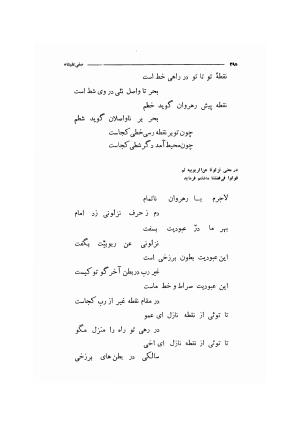 ۲۹۸
صفی‌علیشاه
نقطهٔ تو تا تو در راهی خط است
بحر تا واصل نئی در وی شط است
نقطه پیش رهروان گوید خطم
بحر بر ناواصلان گوید شطم
چون توبر نقطه رسی خطی کجاست
چون محیط آمد دگر شطی کجاست
در معنی نزلونا عن الربوبیه ثم
قولوا فی فضلنا ماشئتم فرماید
لاجرم با رهروان ناتمام
دم ز حرف نزلونی زد امام
بهر ما درّ عبودیت بسفت
نزلونی عن ربوبیّت بگفت
این عبودیت بطون برزخی است
غیر رب در بطن آخر گو تو کیست
این عبودیت صراط و خط ماست
در مقام نقطه غیر از رب کجاست
تا توئی از نقطه نازل ای عمو
در رهی تو راه را منزل مگو
تا توئی از نقطه نازل ای اخی
سالکی در بطن‌های برزخی